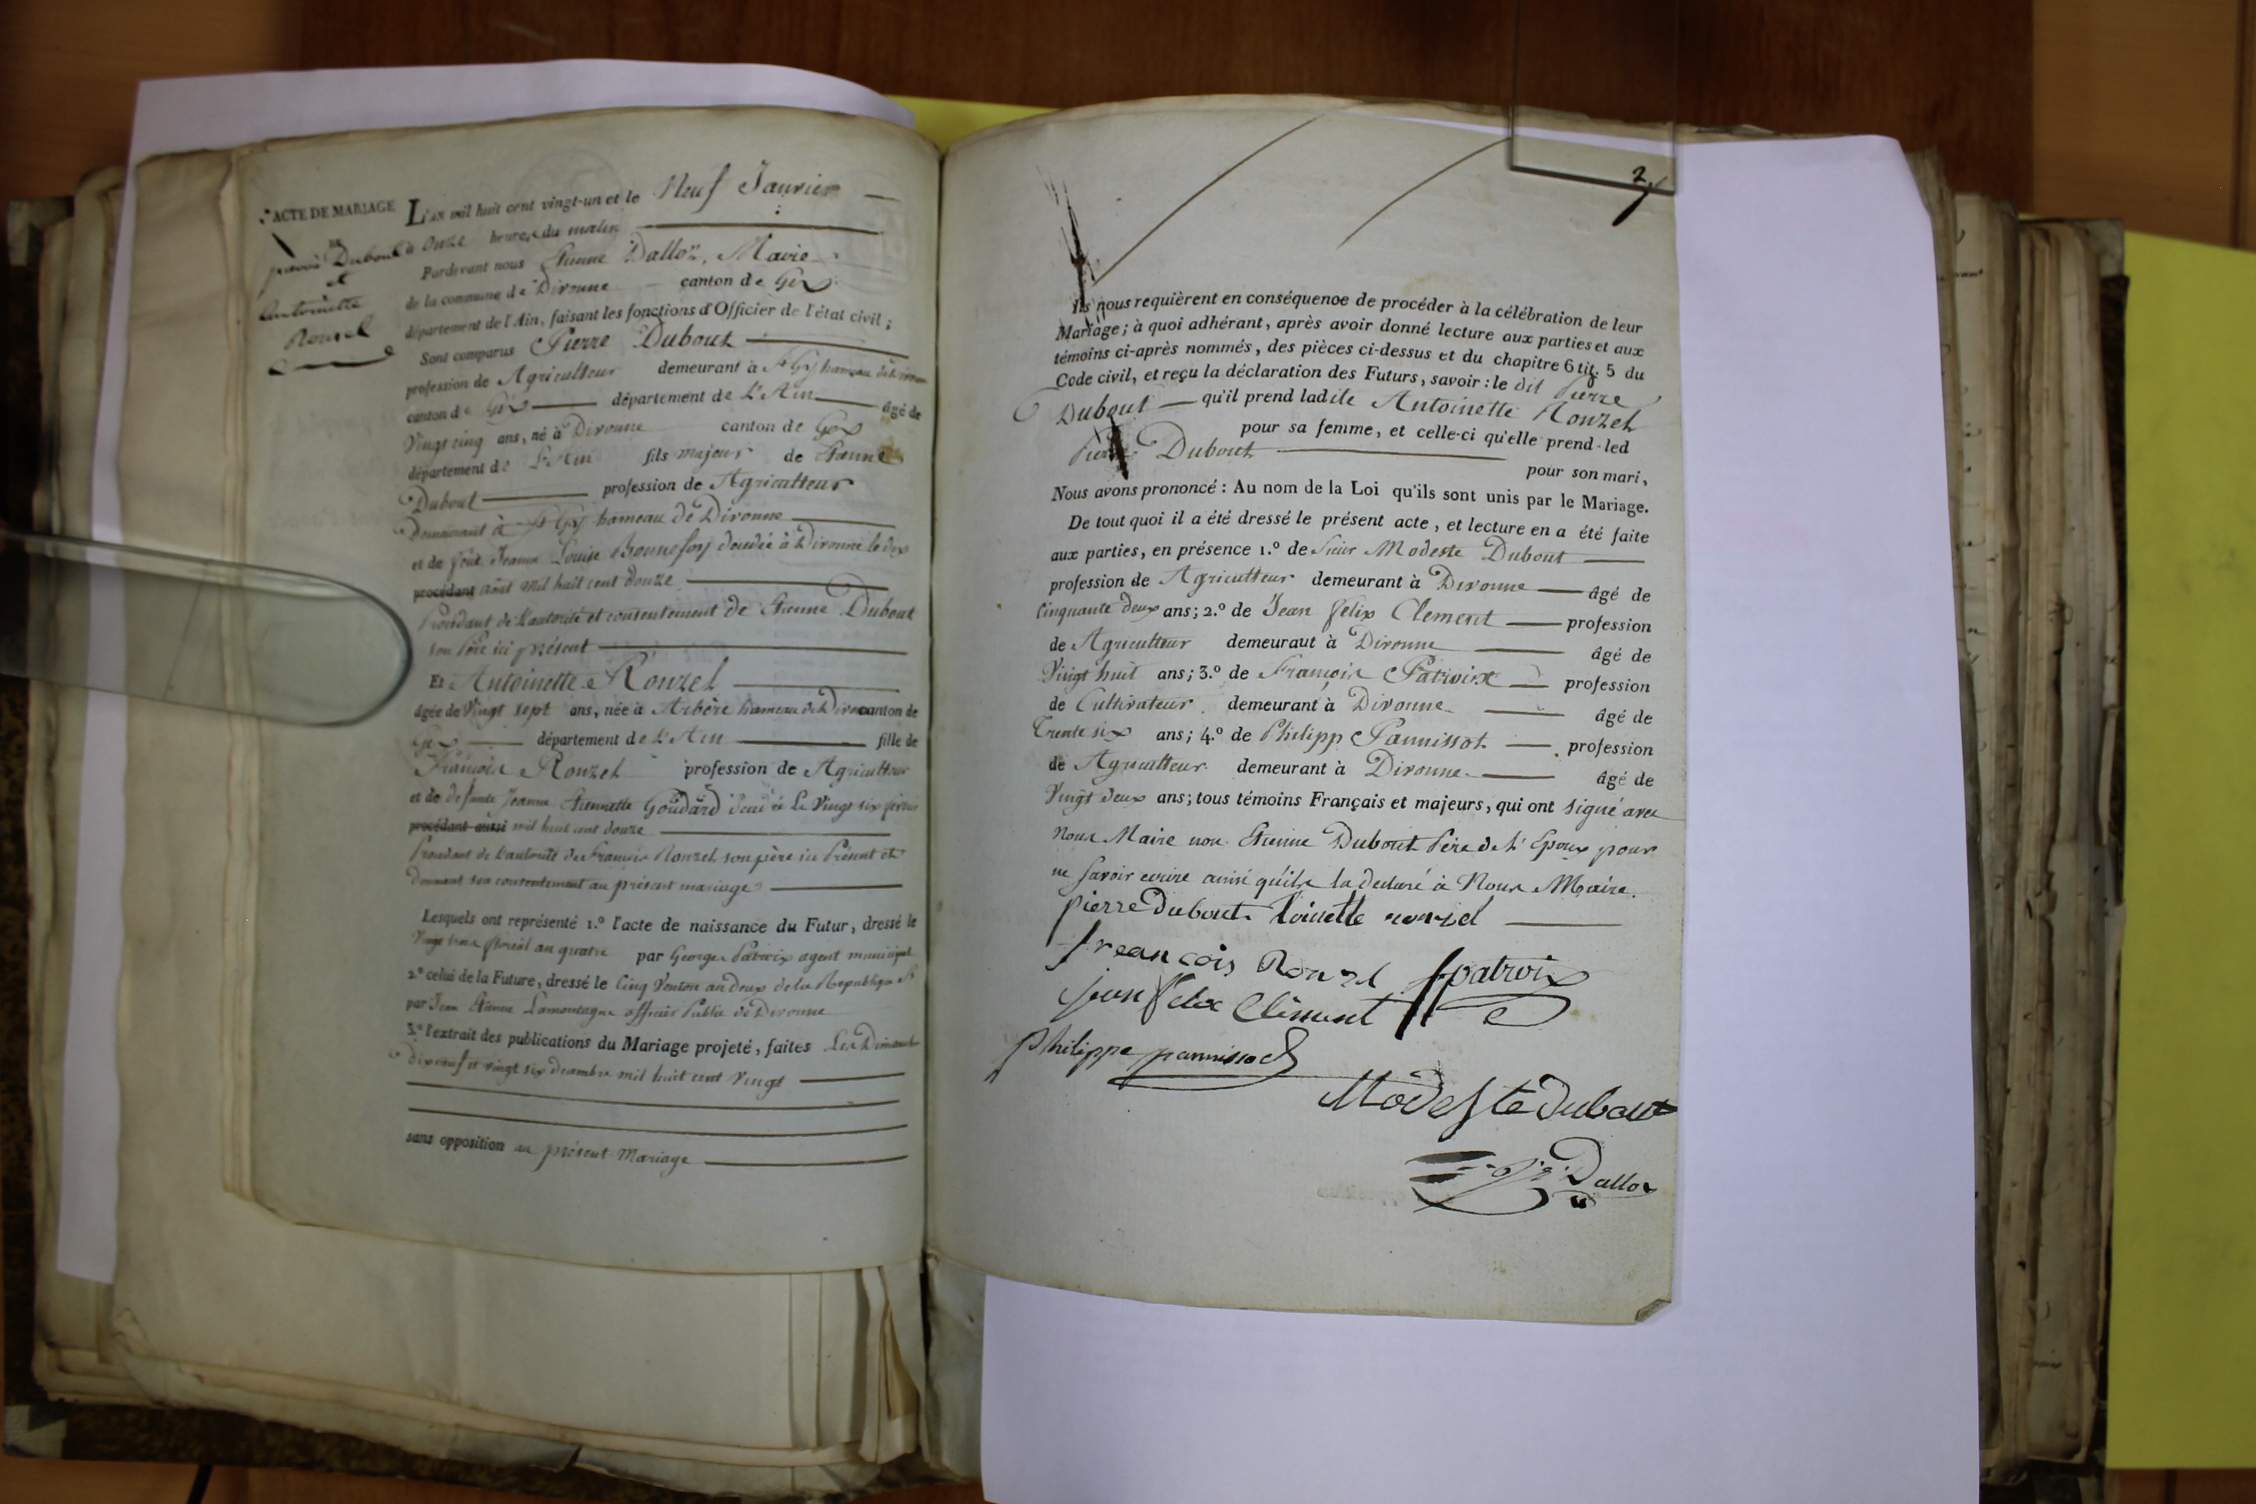 ACTE DE MARIAGE
DE
pierre Dubout
et
Antoinette
Rouzet
L'AN mil huit cent vingt-un et le Neuf Janvier
à Onze heures du matin
Pardevant nous Etienne Dalloz, Maire
de la commune de Divonne canton de Gex
département de l'Ain, faisant les fonctions d'Officier de l'état civil;
Sont comparus Pierre Dubout
profession de Agriculteur demeurant à St Gy hameau de Divonne
canton de Gex département de L'Ain âgé de
Vingt cinq ans, né à Divonne canton de Gex
département de L'Ain fils majeur de Etienne
Dubout profession de Agriculteur
Demeurant à St Gy hameau de Divonne
et de feue Jeanne Louise Bonnefoy décédée à Divonne le dix
procédant août mil huit cent douze
Procédant de l'autorité et consentement de Etienne Dubout
son Père ici présent
Et Antoinette Rouzet
âgée de Vingt sept ans, née à Arbère hameau de Divonne canton de
Gex département de L'Ain fille de
François Rouzet profession de Agriculteur
et de defunte Jeanne Etiennette Goudard décédée Le Vingt six février
procédant aussi mil huit cent douze
Procédant de l'autorité de François Rouzet son père ici Présent et
Donnant son consentement au présent mariage
Lesquels ont représenté 1.º l'acte de naissance du Futur, dressé le
Vingt trois floréal an quatre par George Patroix agent municipal
2.º celui de la Future, dressé le Cinq Ventose an deux de la République
par Jean Etienne Lamontagne officier Public de Divonne
3.º l'extrait des publications du Mariage projeté, faites Les Dimanche
dix neuf et vingt six décembre mil huit cent Vingt
sans opposition au présent Mariage
2
Ils nous requièrent en conséquence de procéder à la célébration de leur
Mariage; à quoi adhérant, après avoir donné lecture aux parties et aux
témoins ci-après nommés, des pièces ci-dessus et du chapitre 6 tit. 5 du
Code civil, et reçu la déclaration des Futurs, savoir: le dit Pierre
Dubout qu'il prend ladite Antoinette Rouzet
pour sa femme, et celle-ci qu'elle prend led
Pierre Dubout
pour son mari,
Nous avons prononcé: Au nom de la Loi qu'ils sont unis par le Mariage.
De tout quoi il a été dressé le présent acte, et lecture en a été faite
aux parties, en présence 1.º de Sieur Modeste Dubout
profession de Agriculteur demeurant à Divonne âgé de
Cinquante deux ans; 2.º de Jean felix Clement profession
de Agriculteur demeurant à Divonne âgé de
Vingt huit ans; 3.º de François Patroix profession
de Cultivateur demeurant à Divonne âgé de
Trente six ans; 4.º de Philipp Pannissot profession
de Agriculteur demeurant à Divonne âgé de
Vingt deux ans; tous témoins Français et majeurs, qui ont signé avec
Nous Maire non Etienne Dubout Père de l'Epoux pour
ne savoir ecrire ainsi qu'il la declaré à Nous Maire.
pierre Dubout toinette rouzel
freancois Rouzel f patroix
jean felix Clement
Philippe pannissod
Modeste dubout
Dalloz